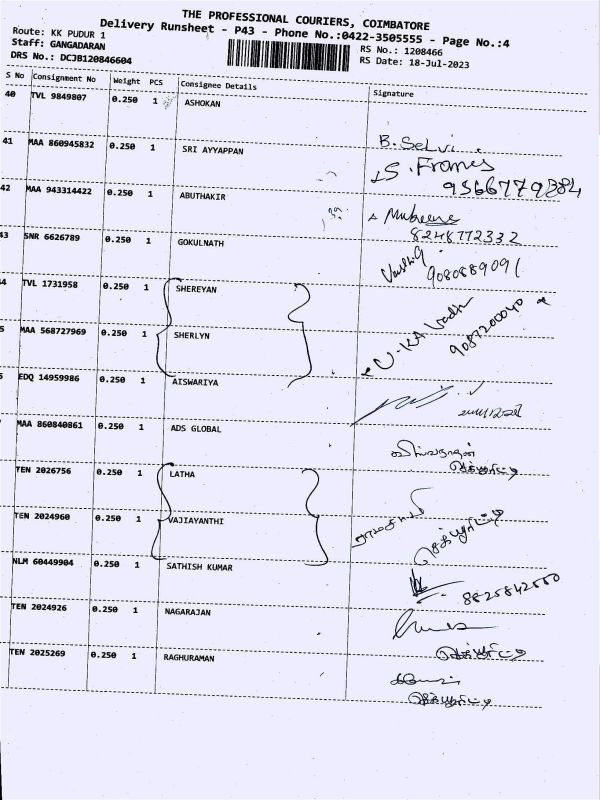 THE PROFESSIONAL COURIERS, COIMBATORE
Delivery Runsheet - P43 - Phone No.:0422-3505555 - Page No.:4
Route: KK PUDUR 1
Staff: GANGADARAN
DRS No.: DCJB120846604
RS No.: 1208466
RS Date: 18-Jul-2023
S No Consignment No Weight PCS Consignee Details Signature
40 TVL 9849807 0.250 1 ASHOKAN B. Selvi
41 MAA 860945832 0.250 1 SRI AYYAPPAN
42 MAA 943314422 0.250 1 ABUTHAKIR
8248772332
43 SNR 6626789 0.250 1 GOKULNATH
9080889091
4 TVL 1731958 0.250 1 SHEREYAN
5 MAA 568727969 0.250 1 SHERLYN
9087200040
EDQ 14959986 0.250 1 AISWARIYA
MAA 860840861 0.250 1 ADS GLOBAL
செக்யூரிட்டி
TEN 2026756 0.250 1 LATHA
TEN 2024960 0.250 1 VAJIAYANTHI
செக்யூரிட்டி
NLM 60449904 0.250 1 SATHISH KUMAR
TEN 2024926 0.250 1 NAGARAJAN
செக்யூரிட்டி
TEN 2025269 0.250 1 RAGHURAMAN
செக்யூரிட்டி